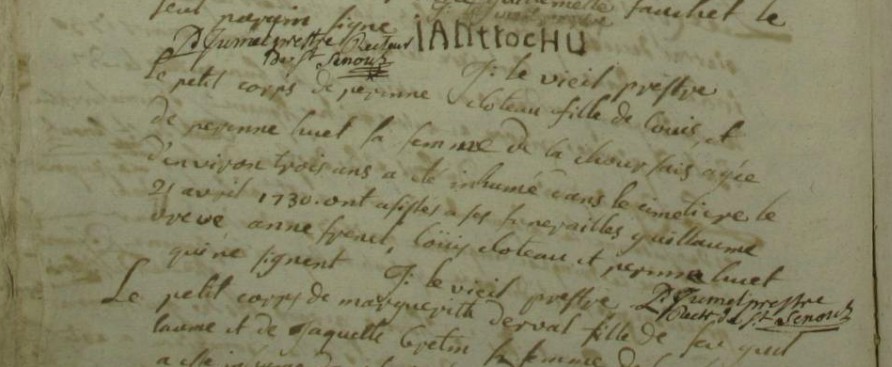 seul parrain signe
P. Jumel prestre Recteur iAn trocHu
De St Senoux
J: le vieil prestre
le petit corps de perinne cloteau fille de louis et
de perinne huet sa femme de la chourfais agée
d'environ trois ans a eté inhumé dans le cimetiere le
21 avril 1730. ont asistes a ses funerailles guillaume
anne frenel, loüis cloteau et perinne huet
qui ne signent J: le vieil prestre P. Jumel prestre
Rectr de St Senoux
Le petit corps de marguerith derval fille de feu guil
laume et de Jaquette Bretin sa femme de